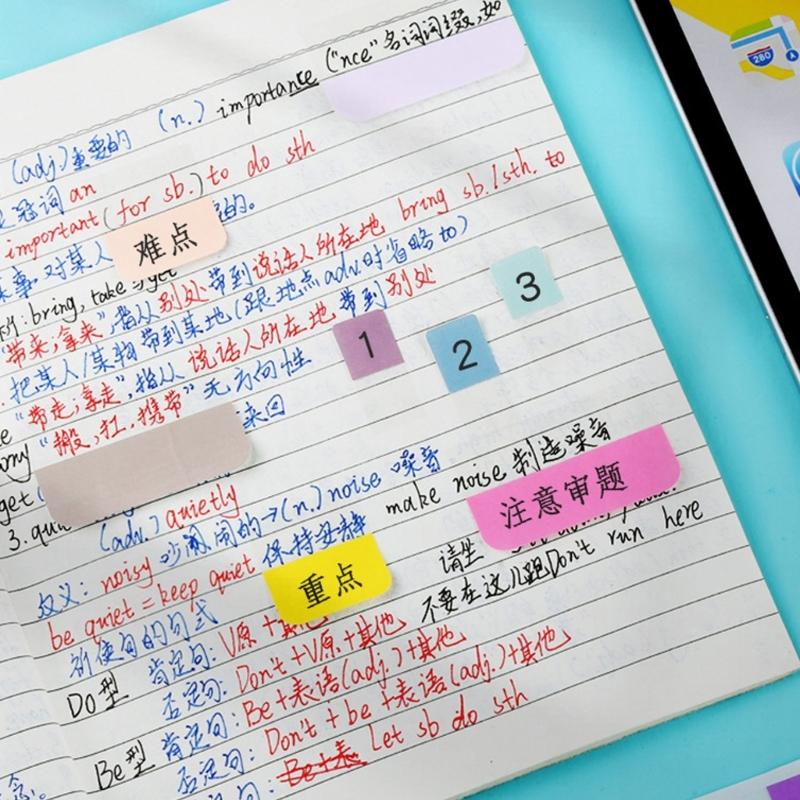 (adj.) 重要的 (n.) importance ("nce"名词词缀,如
冠词 an
important (for sb.) to do sth
某事对某人 的。
难点
bring, take 与 get
"带来;拿来",指从别处带到说话人所在地 bring sb./sth. to
把某人/某物带到某地(跟地点adv.时省略to)
"带走;拿走",指从说话人所在地带到别处
"搬,扛,携带"无方向性
来回
1
2
3
get
3. qui
(adv.) quietly
注意审题
反义: noisy 吵闹的→(n.) noise 噪音 make noise 制造噪音
be quiet = keep quiet 保持安静
重点
请坐
祈使句的句式 不要在这儿跑Don't run here
Do型 肯定句: V原+其他
否定句: Don't+V原+其他
Be型 肯定句: Be+表语(adj.)+其他
否定句: Don't+be+表语(adj.)+其他
Let sb do sth
280